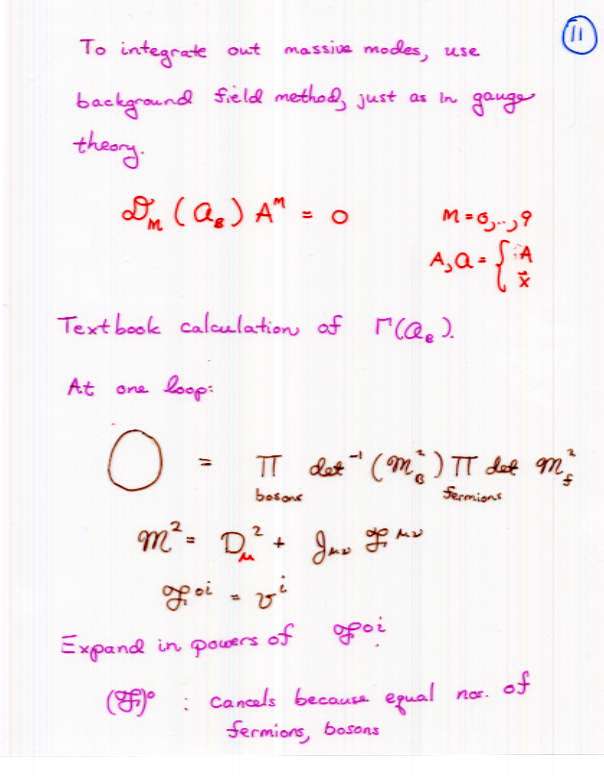 11
To integrate out massive modes, use
background field method, just as in gauge
theory.
𝒟_M (a_B) A^M = 0    M = 0,..,9
A, a = { A
x⃗
Textbook calculation of Γ(a_B).
At one loop:
= Π det⁻¹ (m_B²) Π det m_f²
bosons    fermions
m² = D_μ² + J_μν ℱ^μν
ℱ^0i = v^i
Expand in powers of ℱ^0i.
(ℱ)⁰ : cancels because equal nos. of
fermions, bosons